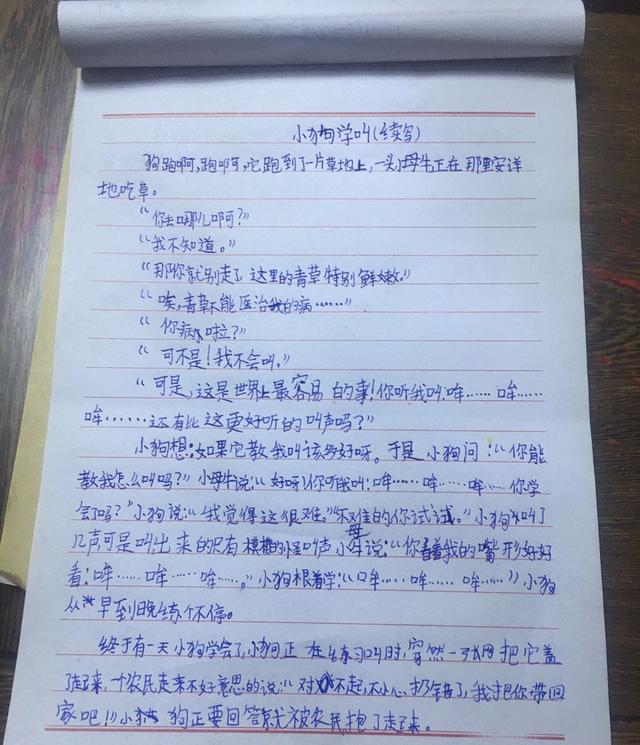 小狗学叫(续写)
狗跑啊,跑啊,它跑到了一片草地上,一头母牛正在那里安详
地吃草。
“你去哪儿啊?”
“我不知道。”
“那你就别走了这里的青草特别鲜嫩。”
“唉,青草不能医治我的病……”
“你病啦?”
“可不是!我不会叫。”
“可是,这是世界上最容易的事!你听我叫:哞……哞……
哞……还有比这更好听的叫声吗?”
小狗想:如果它教我叫该多好呀。于是小狗问:“你能
教我怎么叫吗?”小母牛说:“好呀!你听我叫:哞……哞……哞……你学
会了吗?”小狗说:“我觉得这很难。”“不难的你试试。”小狗叫了
几声可是叫出来的只有怪叫声小母说:“你看着我的嘴形好好
看:哞……哞……哞……。”小狗跟着学:“哞……哞……哞……”小狗
从早到晚练个不停。
终于有一天小狗学会了,小狗正在练习叫时,突然一张网把它盖
了起来,一个农民走来不好意思的说:“对不起,不小心扔错了,我把你带回
家吧!”小狗正要回答就被农民抱了起来。